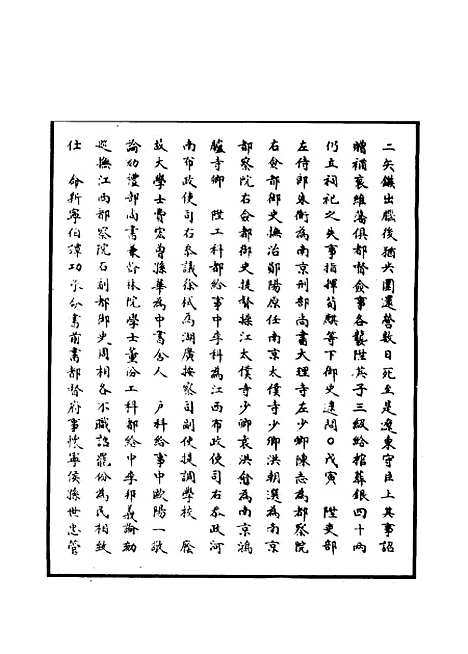 二矢鏃出腦後猶夾圍還營數日死至是遼東守臣上其事詔
贈補袞維藩俱都督僉事各襲陞共子三級給棺葬銀四十兩
仍立祠祀之失事指揮苟麒等下御史逮問○戊寅　陞吏部
左侍郎朱衡為南京刑部尚書大理寺左少卿陳志為都察院
右僉都御史撫治鄖陽原任南京太僕寺少卿洪朝選為南京
都察院右僉都御史提督操江太僕寺少卿袁洪愈為南京鴻
臚寺卿　陞工科都給事中李科為江西布政使司右參政河
南布政使司右參議徐栻為湖廣按察司副使提調學校　廕
故大學士費宏曾孫華為中書舍人　戶科給事中歐陽一敬
論劾禮部尚書兼翰林院學士董份工科都給中李邦義論劾
巡撫江西都察院右副都御史周相各不職詔罷份為民相致
仕　命新寧伯譚功承分書前書都督府事懷寧侯孫世忠管